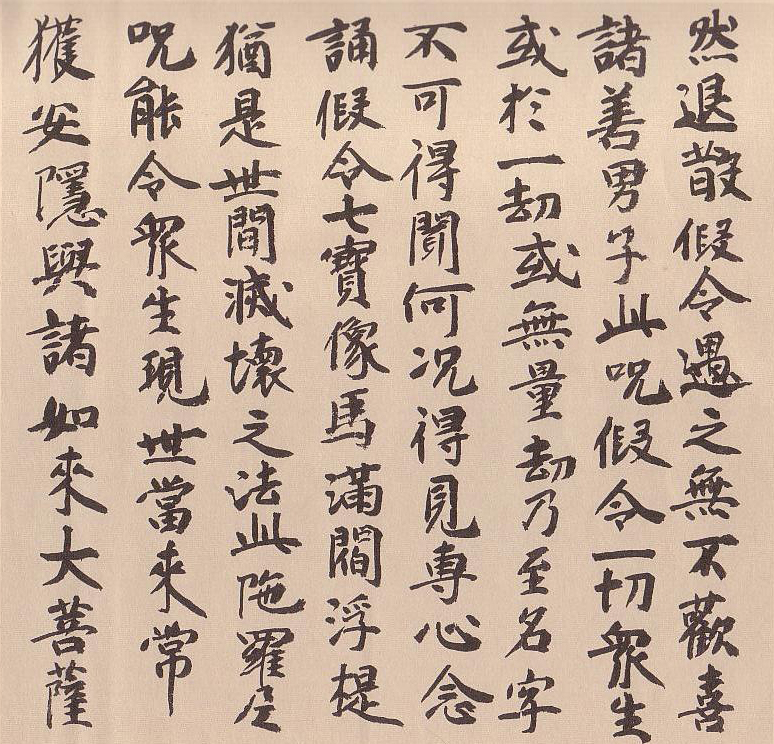 然退散假令遇之無不歡喜
諸善男子此呪假令一切衆生
或於一劫或無量劫乃至名字
不可得聞何況得見專心念
誦假令七寶像馬滿閻浮提
猶是世間滅壞之法此陁羅尼
呪能令衆生現世當來常
獲安隱與諸如來大菩薩